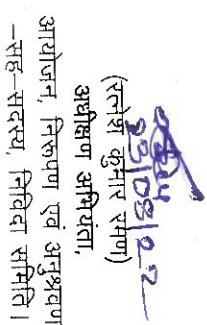 23/08/22
(रत्नेश कुमार रमण)
अधीक्षण अभियंता,
आयोजन, निरूपण एवं अनुश्रवण
-सह-सदस्य, निविदा समिति।